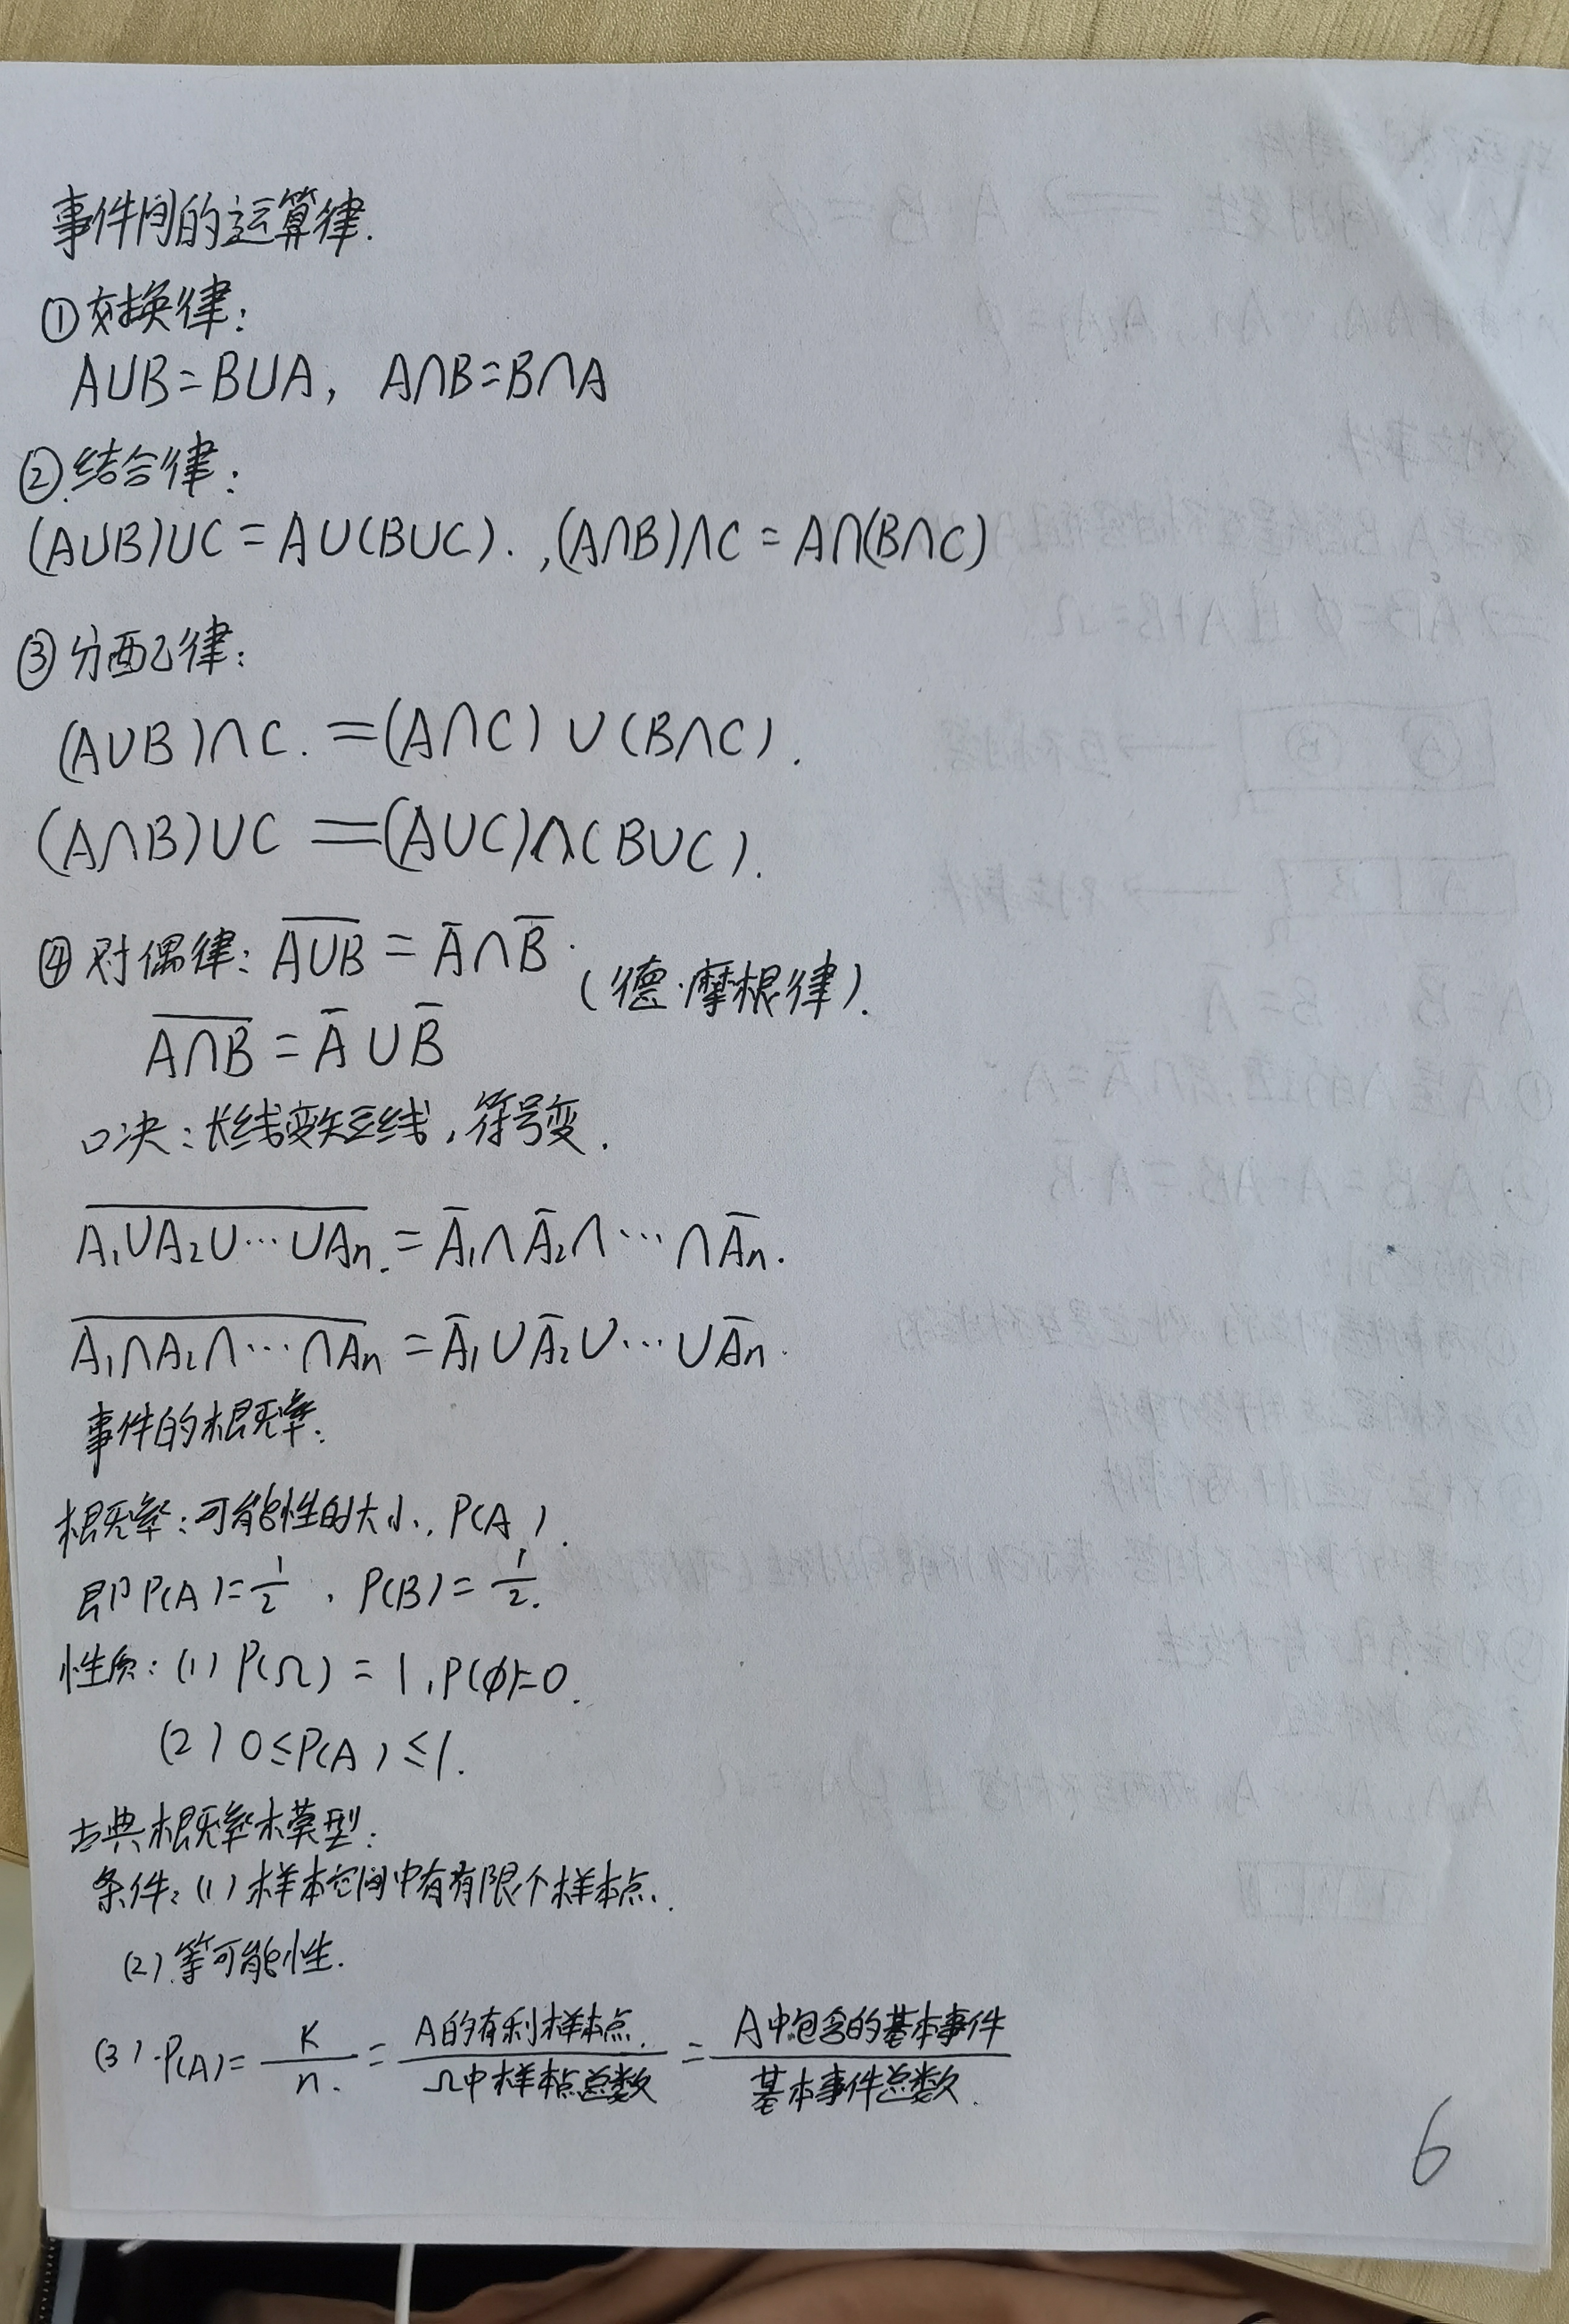 事件间的运算律.
①交换律:
A∪B=B∪A, A∩B=B∩A
②结合律:
(A∪B)∪C=A∪(B∪C). ,(A∩B)∩C=A∩(B∩C)
③分配律:
(A∪B)∩C.=(A∩C)∪(B∩C).
(A∩B)∪C=(A∪C)∩(B∪C).
④对偶律: $\overline{A∪B}=\overline{A}∩\overline{B}$. (德·摩根律).
$\overline{A∩B}=\overline{A}∪\overline{B}$
口决:长线变短线,符号变.
$\overline{A_1∪A_2∪⋯∪A_n}=\overline{A}_1∩\overline{A}_2∩⋯∩\overline{A}_n$.
$\overline{A_1∩A_2∩⋯∩A_n}=\overline{A}_1∪\overline{A}_2∪⋯∪\overline{A}_n$.
事件的概率.
概率:可能性的大小,P(A).
即P(A)=$\frac{1}{2}$, P(B)=$\frac{1}{2}$.
性质:(1) P(Ω)=1,P(ϕ)=0.
(2) 0≤P(A)≤1.
古典概率模型:
条件:(1)样本空间中有有限个样本点.
(2)等可能性.
(3) P(A)=$\frac{K}{n}$=$\frac{A的有利样本点}{Ω中样本点总数}$=$\frac{A中包含的基本事件}{基本事件总数}$.
6